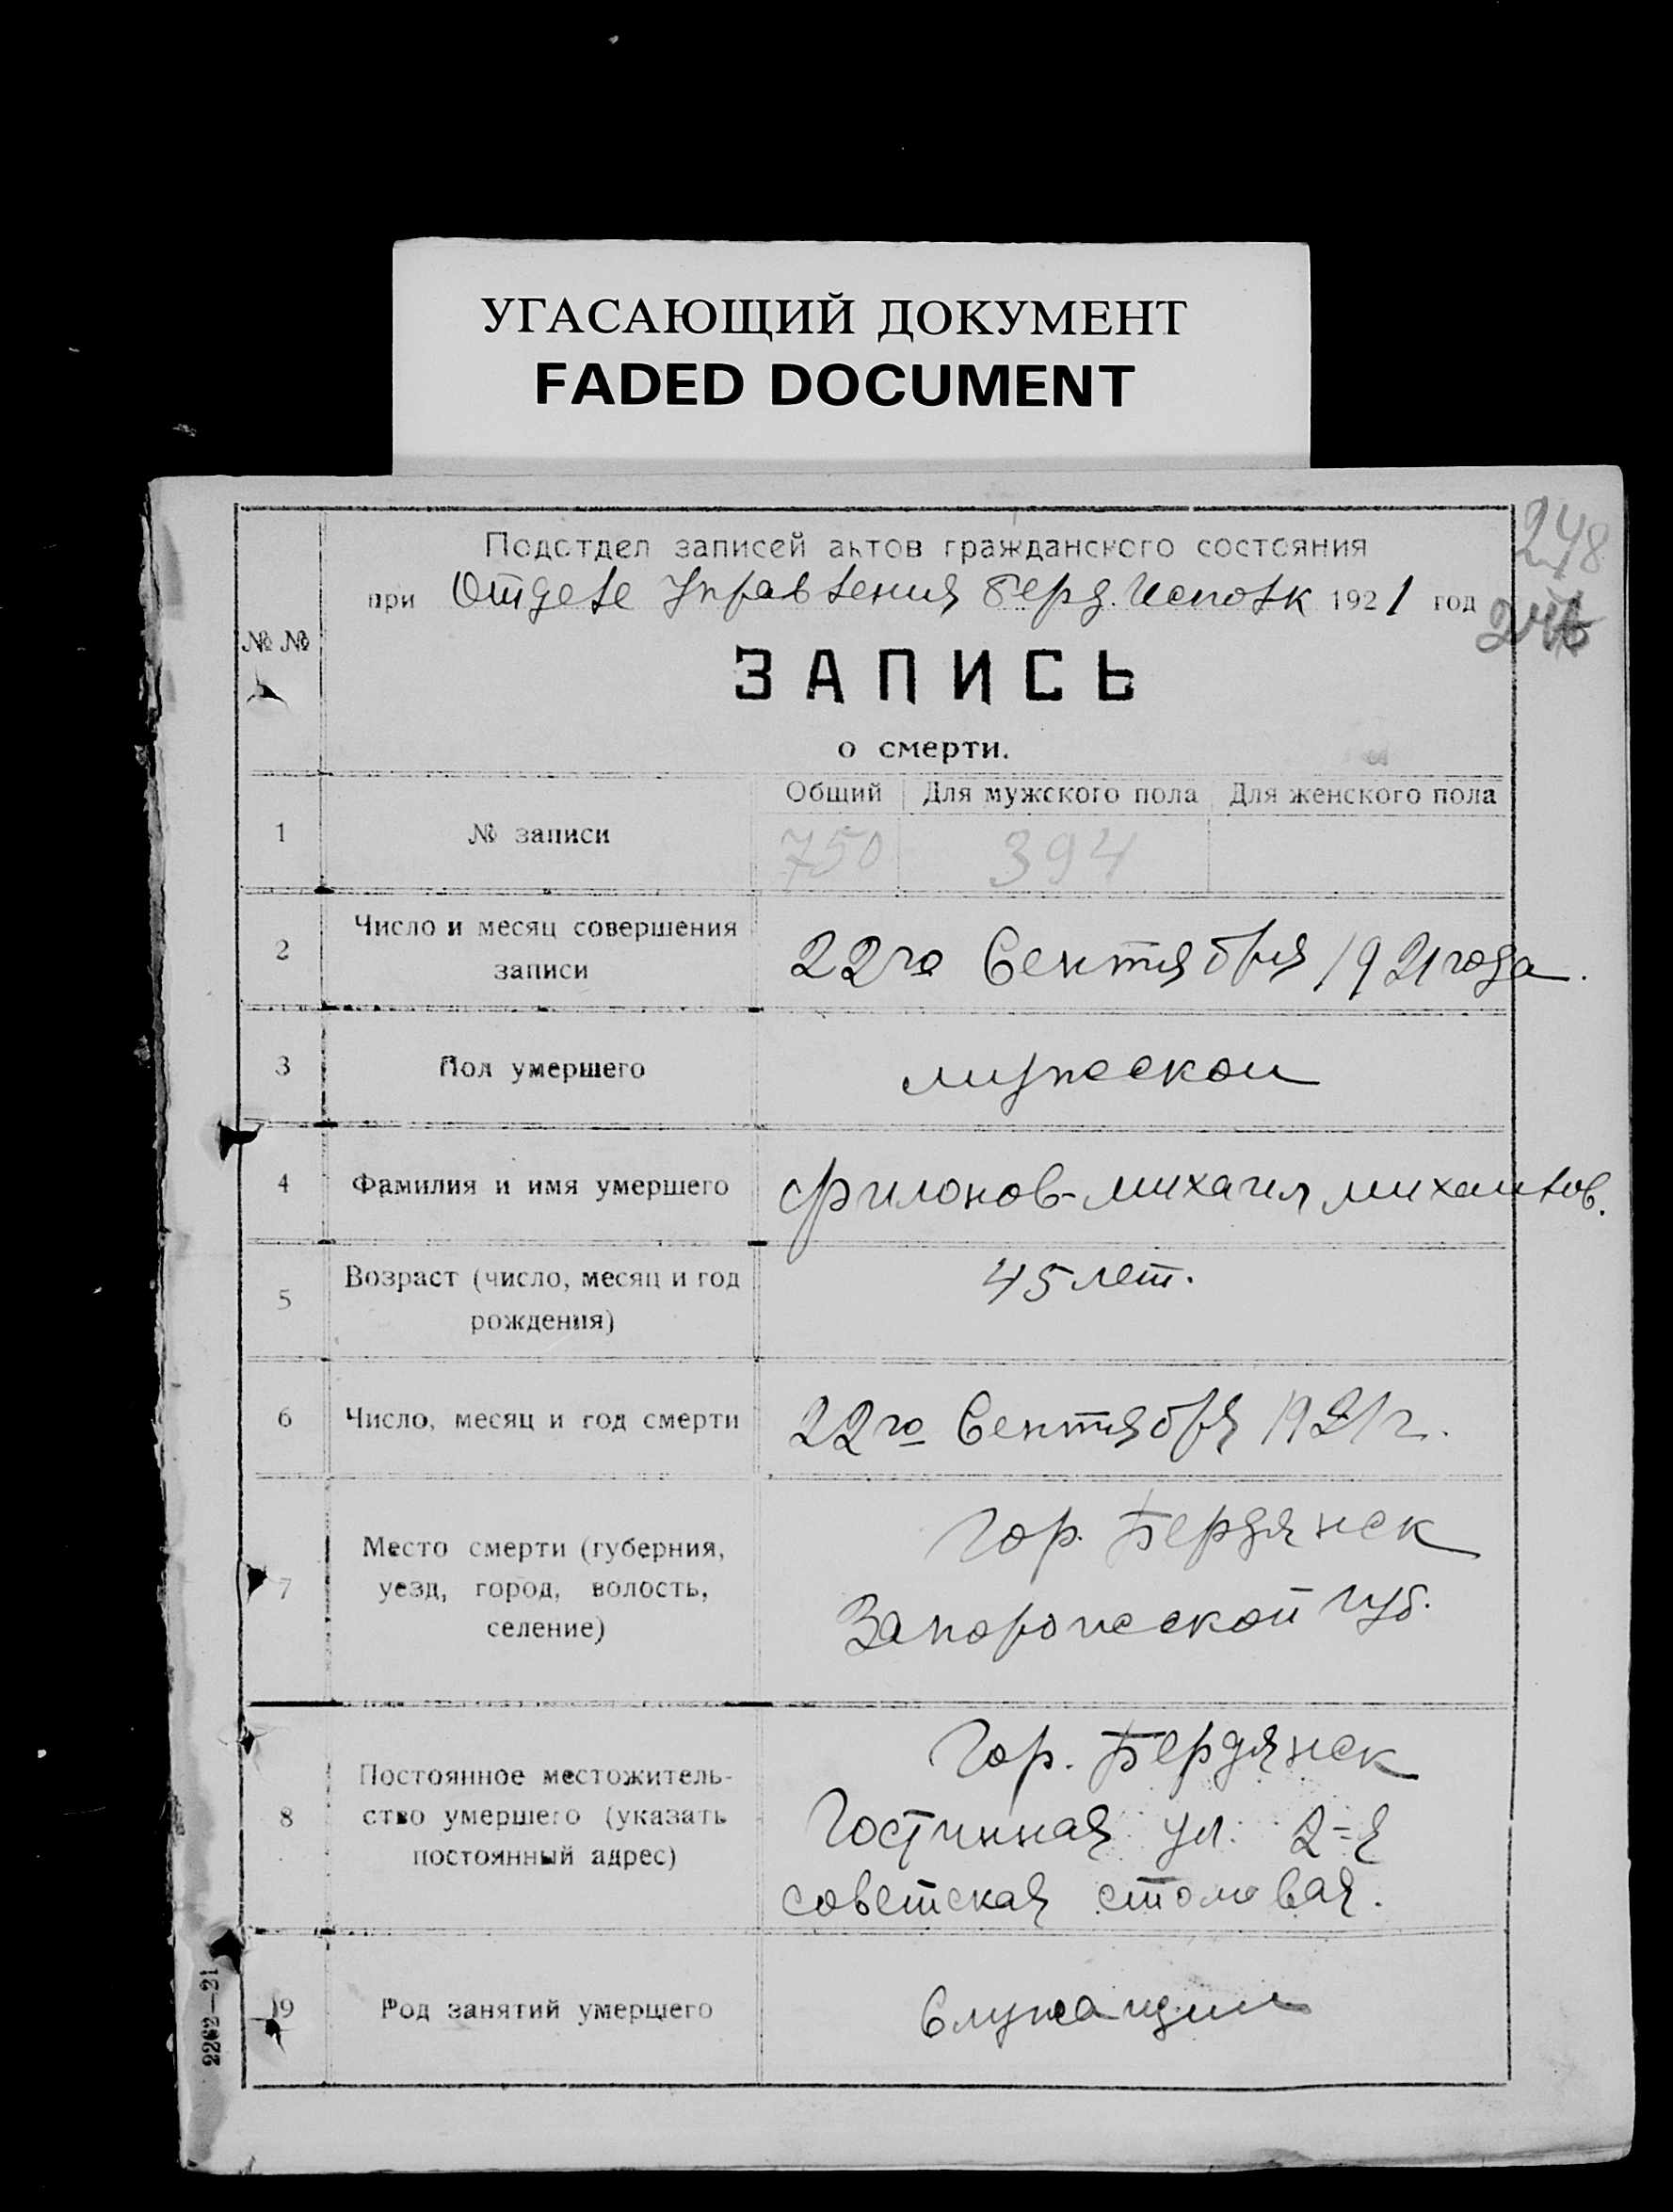 УГАСАЮЩИЙ ДОКУМЕНТ
FADED DOCUMENT
248
Подотдел записей актов гражданского состояния
при Отделе Управления Берд. Исполк 1921 год
№ №
ЗАПИСЬ
о смерти.
Общий Для мужского пола Для женского пола
1 № записи 750 394
2 Число и месяц совершения
записи
22го Сентября 1921 года.
3 Пол умершего мужской
4 Фамилия и имя умершего Филонов-Михаил Михайлов.
5 Возраст (число, месяц и год
рождения)
45 лет.
6 Число, месяц и год смерти 22го Сентября 1921 г.
7 Место смерти (губерния,
уезд, город, волость,
селение)
Гор. Бердянск
Запорожской губ.
8 Постоянное местожитель-
ство умершего (указать
постоянный адрес)
Гор. Бердянск
Гостинная ул. 2=я
советская столовая.
9 Род занятий умершего Служащий
2262—21